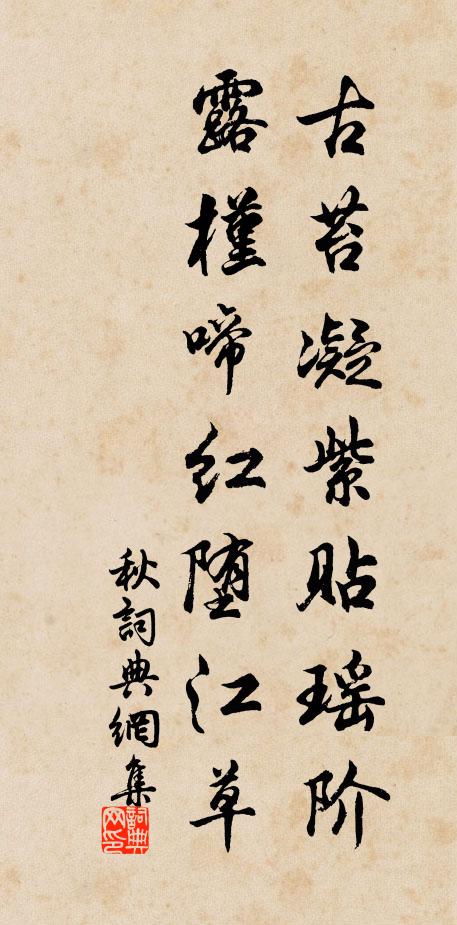 古苔凝紫贴瑶阶
露槿啼红堕江草
秋詞典網集
詞典网印